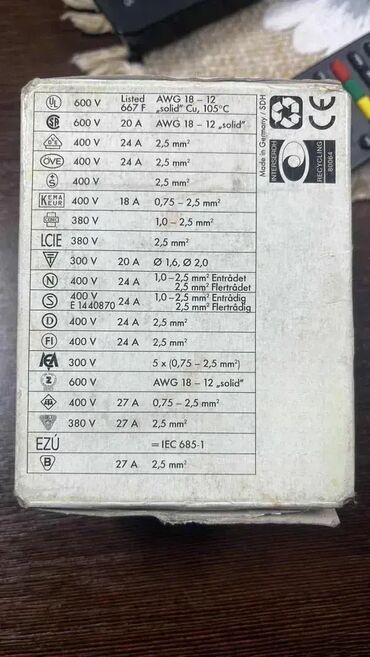 UL 600 V Listed 667 F AWG 18 – 12 „solid” Cu, 105°C
600 V 20 A AWG 18 – 12 „solid”
400 V 24 A 2,5 mm²
OVE 400 V 24 A 2,5 mm²
+S 400 V 2,5 mm²
KEMA KEUR 400 V 18 A 0,75 – 2,5 mm²
380 V 1,0 – 2,5 mm²
LCIE 380 V 2,5 mm²
300 V 20 A Ø 1,6, Ø 2,0
N 400 V 24 A 1,0 – 2,5 mm² Entrådet
2,5 mm² Flertrådet
S 400 V E 1440870 24 A 1,0 – 2,5 mm² Entrådig
2,5 mm² Flertrådig
D 400 V 24 A 2,5 mm²
FI 400 V 24 A 2,5 mm²
300 V 5 x (0,75 – 2,5 mm²)
600 V AWG 18 – 12 „solid”
400 V 27 A 0,75 – 2,5 mm²
380 V 27 A 2,5 mm²
EZÚ = IEC 685-1
B 27 A 2,5 mm²
Made in Germany / SDH
CE
INTERSEROH
RECYCLING
80064